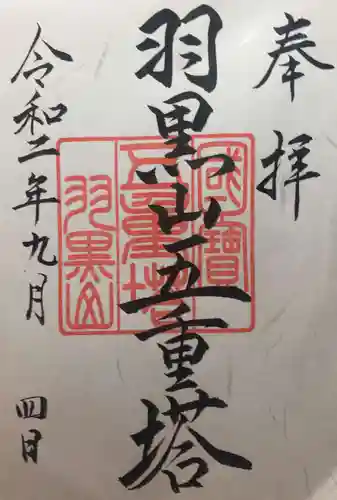 奉拝
羽黒山五重塔
令和二年九月四日
國寶
五重塔
羽黒山